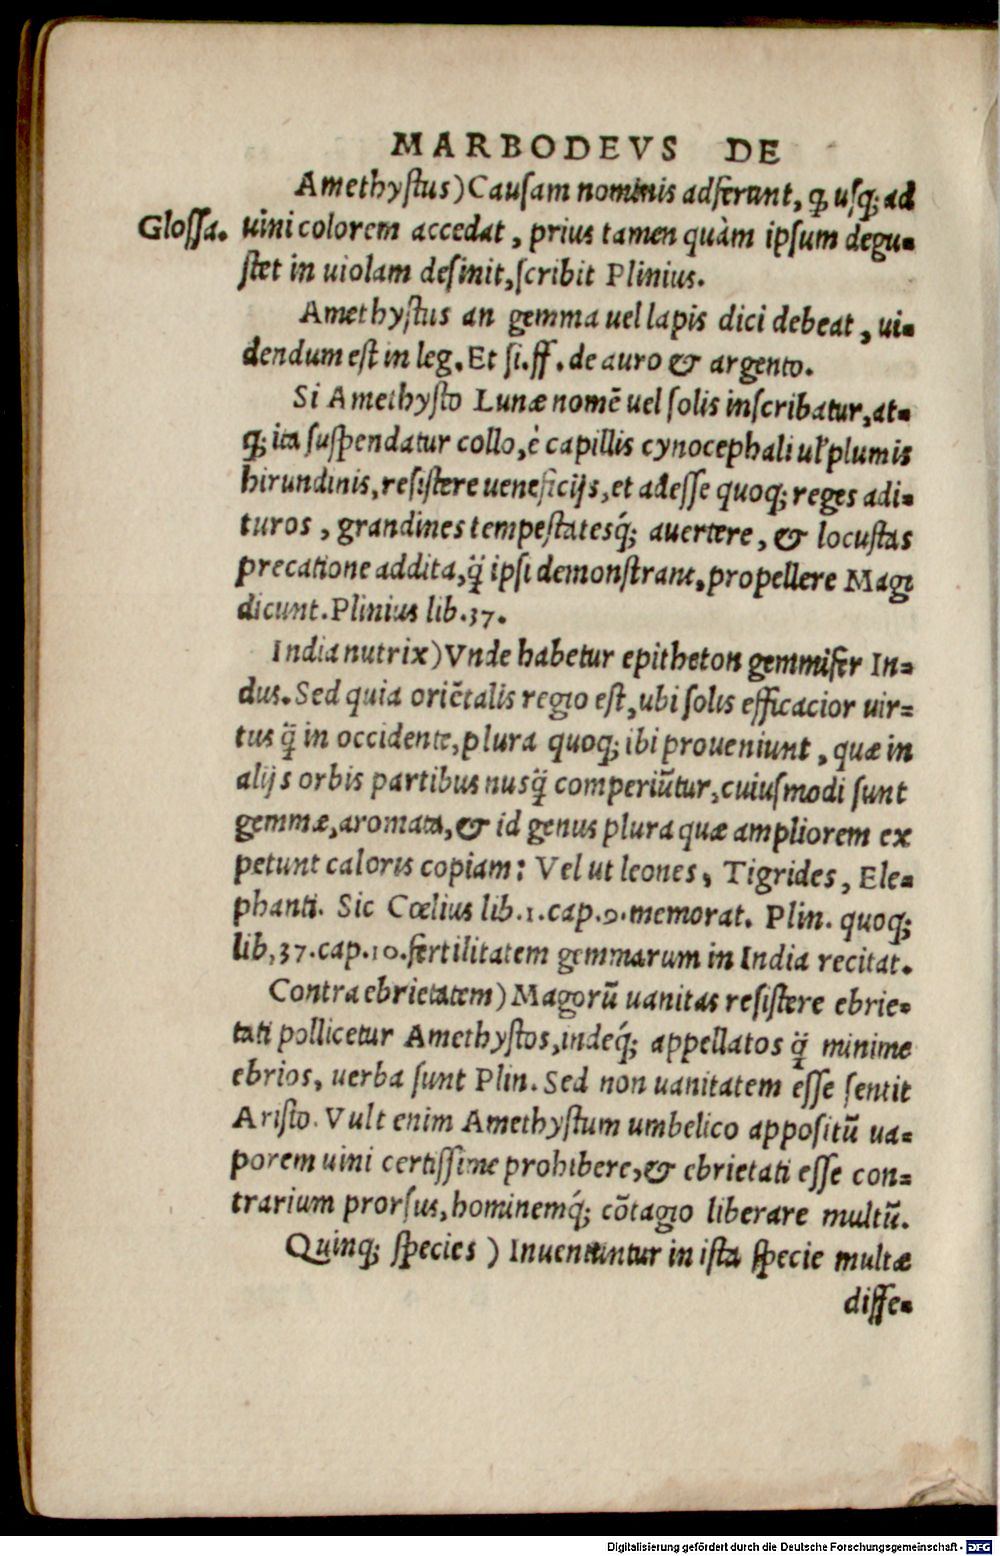 MARBODEVS DE
Amethyſtus) Cauſam nominis adferunt, ꝗ uſq; ad
Gloſſa. uini colorem accedat, prius tamen quàm ipſum degu-
ſtet in uiolam deſinit, ſcribit Plinius.
Amethyſtus an gemma uel lapis dici debeat, ui-
dendum eſt in leg. Et ſi. ff. de auro & argento.
Si Amethyſto Lunæ nomē uel ſolis inſcribatur, at-
q; ita ſuſpendatur collo, è capillis cynocephali ul̓ plumis
hirundinis, reſiſtere ueneficijs, et adeſſe quoq; reges adi-
turos, grandines tempeſtatesq́; auertere, & locuſtas
precatione addita, q̈̃ ipſi demonſtrant, propellere Magi
dicunt. Plinius lib. 37.
India nutrix) Vnde habetur epitheton gemmifer In-
dus. Sed quia oriētalis regio eſt, ubi ſolis efficacior uir-
tus q̈̃ in occidente, plura quoq; ibi proueniunt, quæ in
alijs orbis partibus nusq̈̃ comperiūtur, cuiuſmodi ſunt
gemmæ, aromata, & id genus plura quæ ampliorem ex
petunt caloris copiam: Vel ut leones, Tigrides, Ele-
phanti. Sic Cœlius lib. 1. cap. 9. memorat. Plin. quoq;
lib, 37. cap. 10. fertilitatem gemmarum in India recitat.
Contra ebrietatem) Magorū uanitas reſiſtere ebrie-
tati pollicetur Amethyſtos, indeq́; appellatos q̈̃ minime
ebrios, uerba ſunt Plin. Sed non uanitatem eſſe ſentit
Ariſto. Vult enim Amethyſtum umbelico appoſitū ua-
porem uini certiſſime prohibere, & ebrietati eſſe con-
trarium prorſus, hominemq́; cōtagio liberare multū.
Quinq; ſpecies) Inueniuntur in iſta ſpecie multæ
diffe-
Digitalisierung gefördert durch die Deutsche Forschungsgemeinschaft - DFG